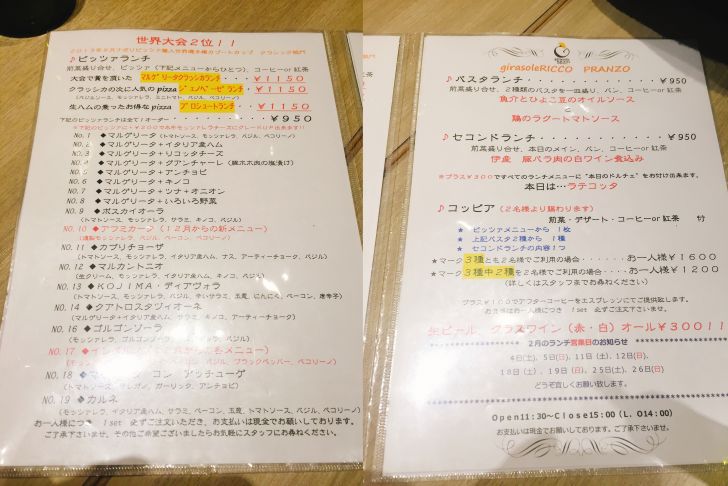 世界大会2位!!
♪ピッツァランチ
前菜盛り合せ、ピッツァ(下記メニューからひとつ)、コーヒーor 紅茶
大会で賞を頂いた マルゲリータクラシカランチ・・・・¥1150
クラシッカの次に人気の pizza ジェノベーゼランチ・・・¥1150
生ハムの乗ったお得な pizza プロシュートランチ・・・¥1150
下記のピッツァランチは全て1オーダー・・・・・・・¥950
NO. 1 ◆マルゲリータ(トマトソース、モッツァレラ、バジル、ペコリーノ)
NO. 2 ◆マルゲリータ+イタリア産ハム
NO. 3 ◆マルゲリータ+リコッタチーズ
NO. 4 ◆マルゲリータ+グアンチャーレ(豚ホホ肉の塩漬け)
No. 5 ◆マルゲリータ+アンチョビ
NO. 6 ◆マルゲリータ+キノコ
NO. 7 ◆マルゲリータ+ツナ+オニオン
NO. 8 ◆マルゲリータ+いろいろ野菜
NO. 9 ◆ボスカイオーラ
(トマトソース、モッツァレラ、サラミ、キノコ、バジル)
NO. 10 ◆アフミカータ(12月からの新メニュー)
(燻製モッツァレラ、バジル、ベーコン、ペコリーノ)
NO. 11 ◆カプリチョーザ
(トマトソース、モッツァレラ、イタリア産ハム、ナス、アーティーチョーク、バジル)
NO. 12 ◆マルカントニオ
(生クリーム、モッツァレラ、イタリア産ハム、キノコ、バジル)
NO. 13 ◆KOJIMA・ディアヴォラ
(トマトソース、モッツァレラ、辛いサラミ、玉葱、にんにく、ベーコン、唐辛子)
NO. 14 ◆クアトロスタジィオーネ
(マルゲリータ+イタリア産ハム、サラミ、キノコ、アーティーチョーク)
NO. 16 ◆ゴルゴンゾーラ
NO. 17 ◆
メニュー)
バジル、ブラックペッパー、ペコリーノ)
NO. 18 ◆
コン アッチューゲ
(トマトソース、オレガノ、ガーリック、アンチョビ)
NO. 19 ◆カルネ
(モッツァレラ、イタリア産ハム、サラミ、ベーコン、玉葱、トマトソース、バジル、ペコリーノ)
お一人様につき 1set 必ずご注文いただき、お支払いは現金でお願いしております。
ご了承下さいませ。その他ご希望ございましたらお気軽にスタッフにお尋ねください。
girasoleRICCO PRANZO
♪パスタランチ・・・・・・・・・・・・・・・¥950
前菜盛り合せ、2種類のパスタから1種、パン、コーヒーor 紅茶
魚介とひよこ豆のオイルソース
と
鶏のラグートマトソース
♪セコンドランチ・・・・・・・・・・・・・・¥950
前菜盛り合せ、本日のメイン、パン、コーヒーor 紅茶
伊産 豚バラ肉の白ワイン煮込み
*プラス¥300ですべてのランチメニューに"本日のドルチェ"をお付け出来ます。
本日は・・・ラテコッタ
♪コッピア(2名様より賜わります)
前菜・デザート・コーヒーor 紅茶 付
★ ピッツァメニューから 1枚
★ 上記パスタ2種から 1種
★ セコンドランチの内容1つ
★マーク3種とも2名様でご利用の場合・・・・・お一人様¥1600
★マーク3種中2種を2名様でご利用の場合・・・お一人様¥1200
(詳しくはスタッフまでお尋ねください)
プラス¥100でアフターコーヒーをエスプレッソにてご提供致します。
お支払はお一人様につき 1set 必ず
生ビール、グラスワイン(赤・白)オール¥300!!
2月のランチ営業日のお知らせ
4日(土)、5日(日)、11日(土)、12日(日)、
18日(土)、19日(日)、25日(土)、26日(日)
どうぞ宜しくお願い致します。
Open11:30~Close15:00(L.O14:00)
お支払いは現金でお願いしております。ご了承ください。